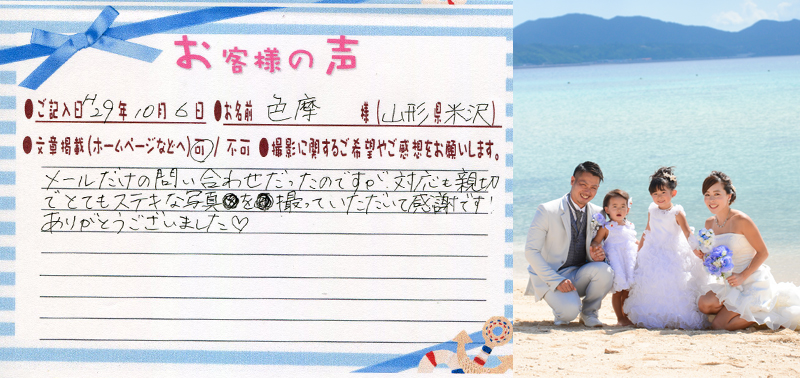 お客様の声
●ご記入日 H29年10月6日 ●お名前 色摩 様(山形県米沢)
●文章掲載(ホームページなどへ)可/不可 ●撮影に関するご希望やご感想をお願いします。
メールだけの問い合わせだったのですが、対応も親切
でとてもステキな写真を撮っていただいて感謝です!
ありがとうございました♡